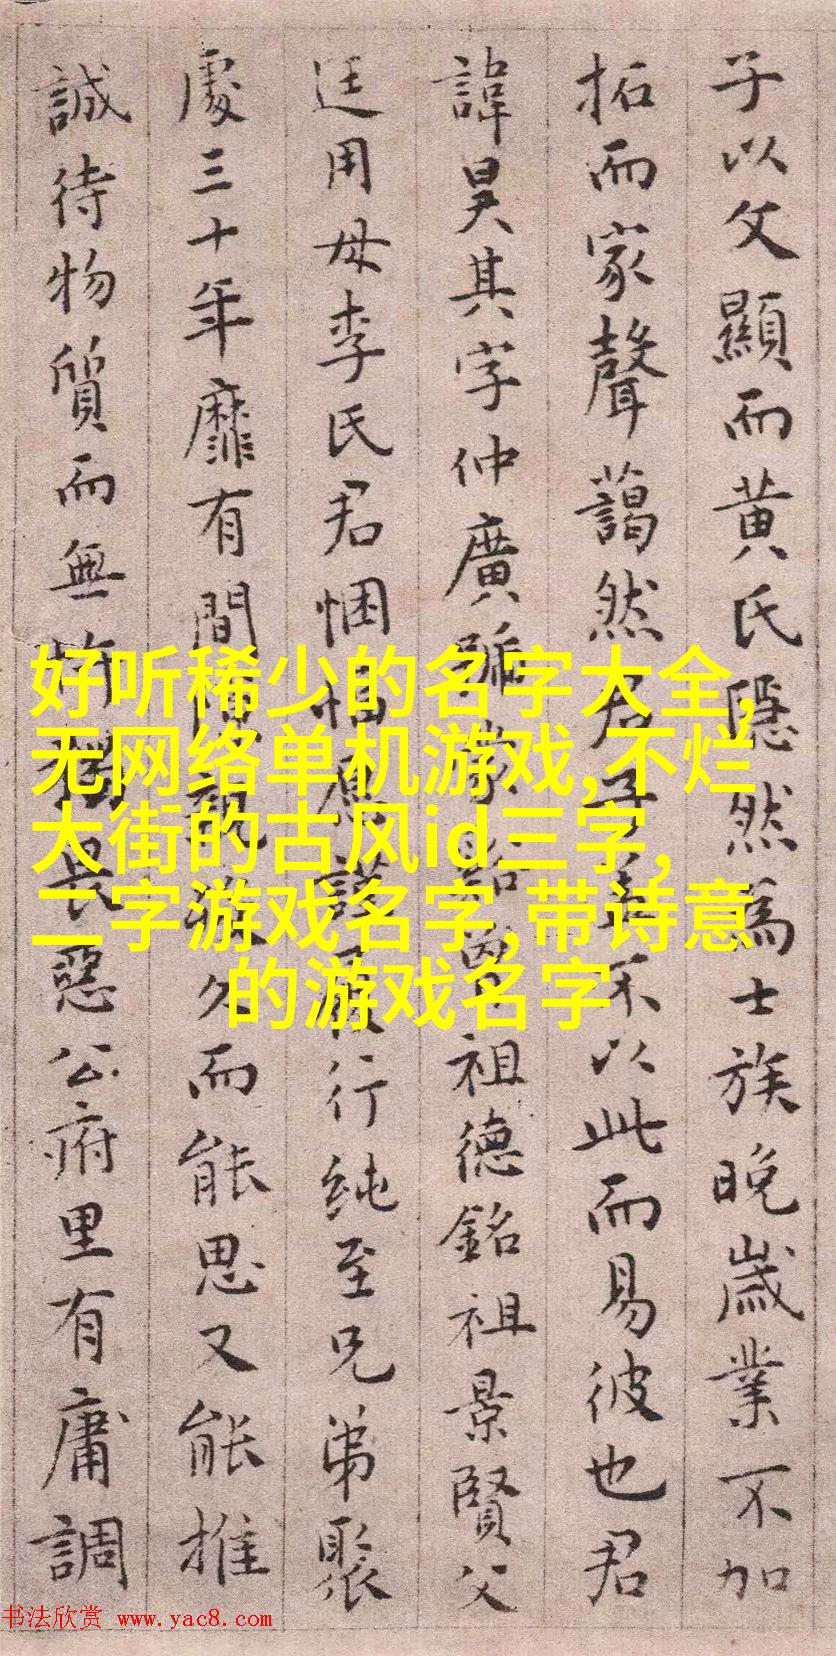 子以父顯而黄氏隱然為士族晚歲業不加
拓而家聲藹然君子不以此而易彼也君
諱昊其字仲廣號曾祖德銘祖景賢父
廷用母李氏君悃愊應謹行純至兄弟聚
處三十年靡有間久而能思又能推
誠待物質而無畏惡公府里有庸調
好听稀少的名字大全,
无网络单机游戏,不烂
大街的古风id三字,
二字游戏名字,带诗意
的游戏名字
书法欣赏 www.yac8.com